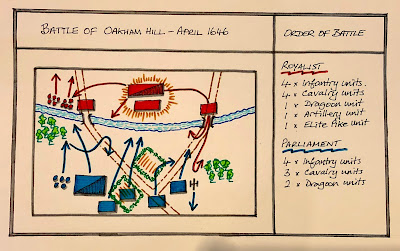 BATTLE OF OAKHAM HILL - APRIL 1646
ORDER OF BATTLE
ROYALIST
4 x Infantry units.
4 x Cavalry units
1 x Dragoon unit
1 x Artillery unit
1 x Elite Pike unit
PARLIAMENT
4 x Infantry units
3 x Cavalry units
2 x Dragoon units